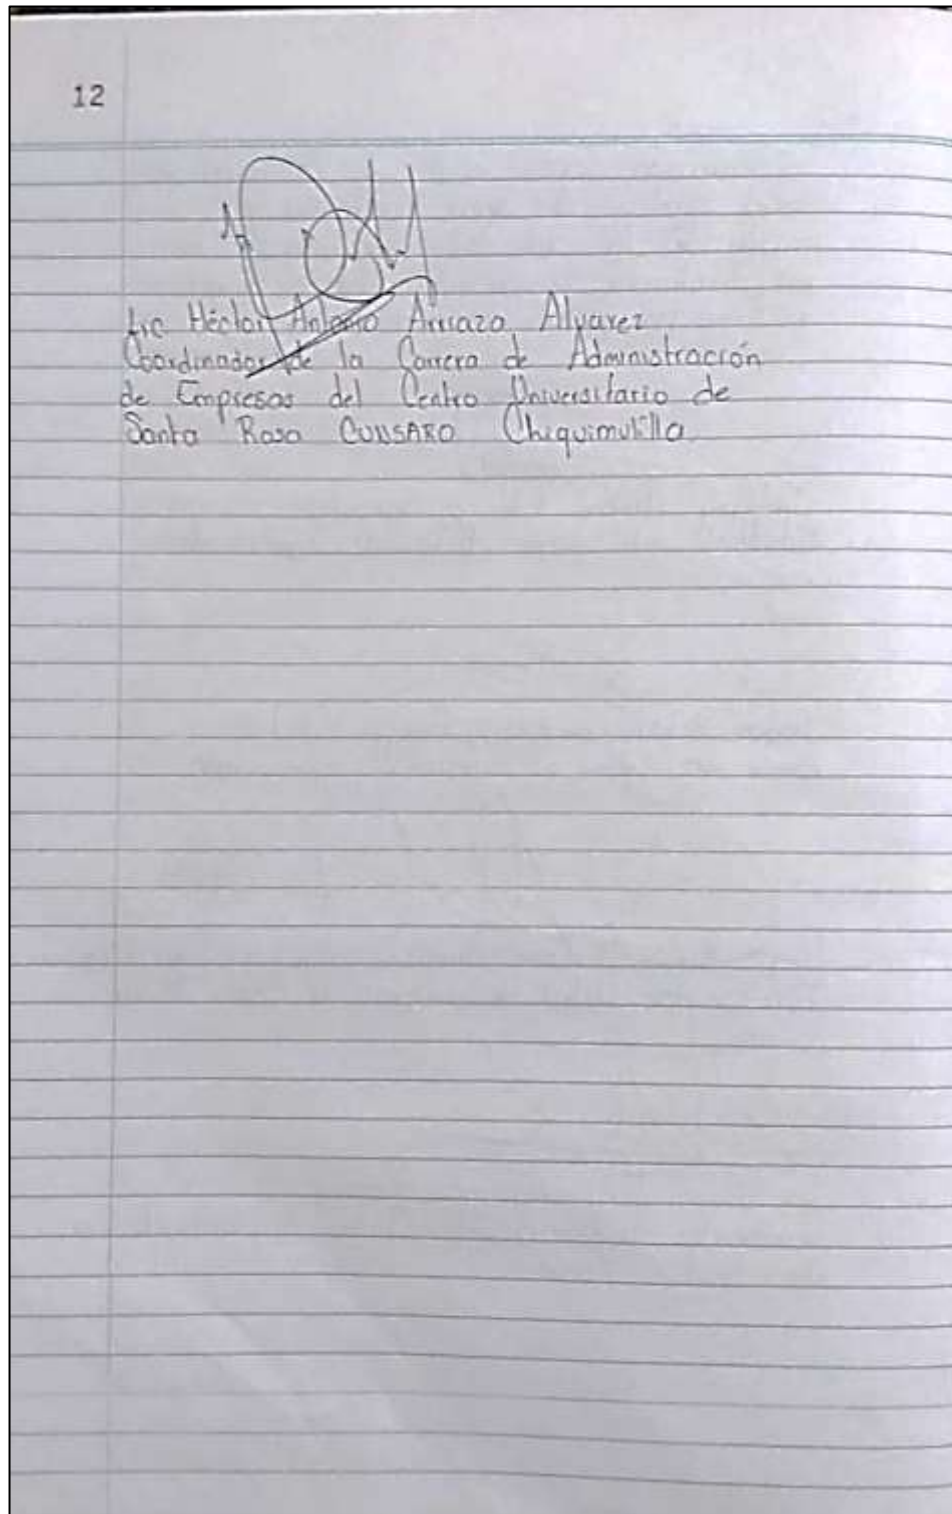 12
Lic Héctor Antonio Arriaza Alvarez
Coordinador de la Carrera de Administración
de Empresas del Centro Universitario de
Santa Rosa CUNSARO Chiquimulilla